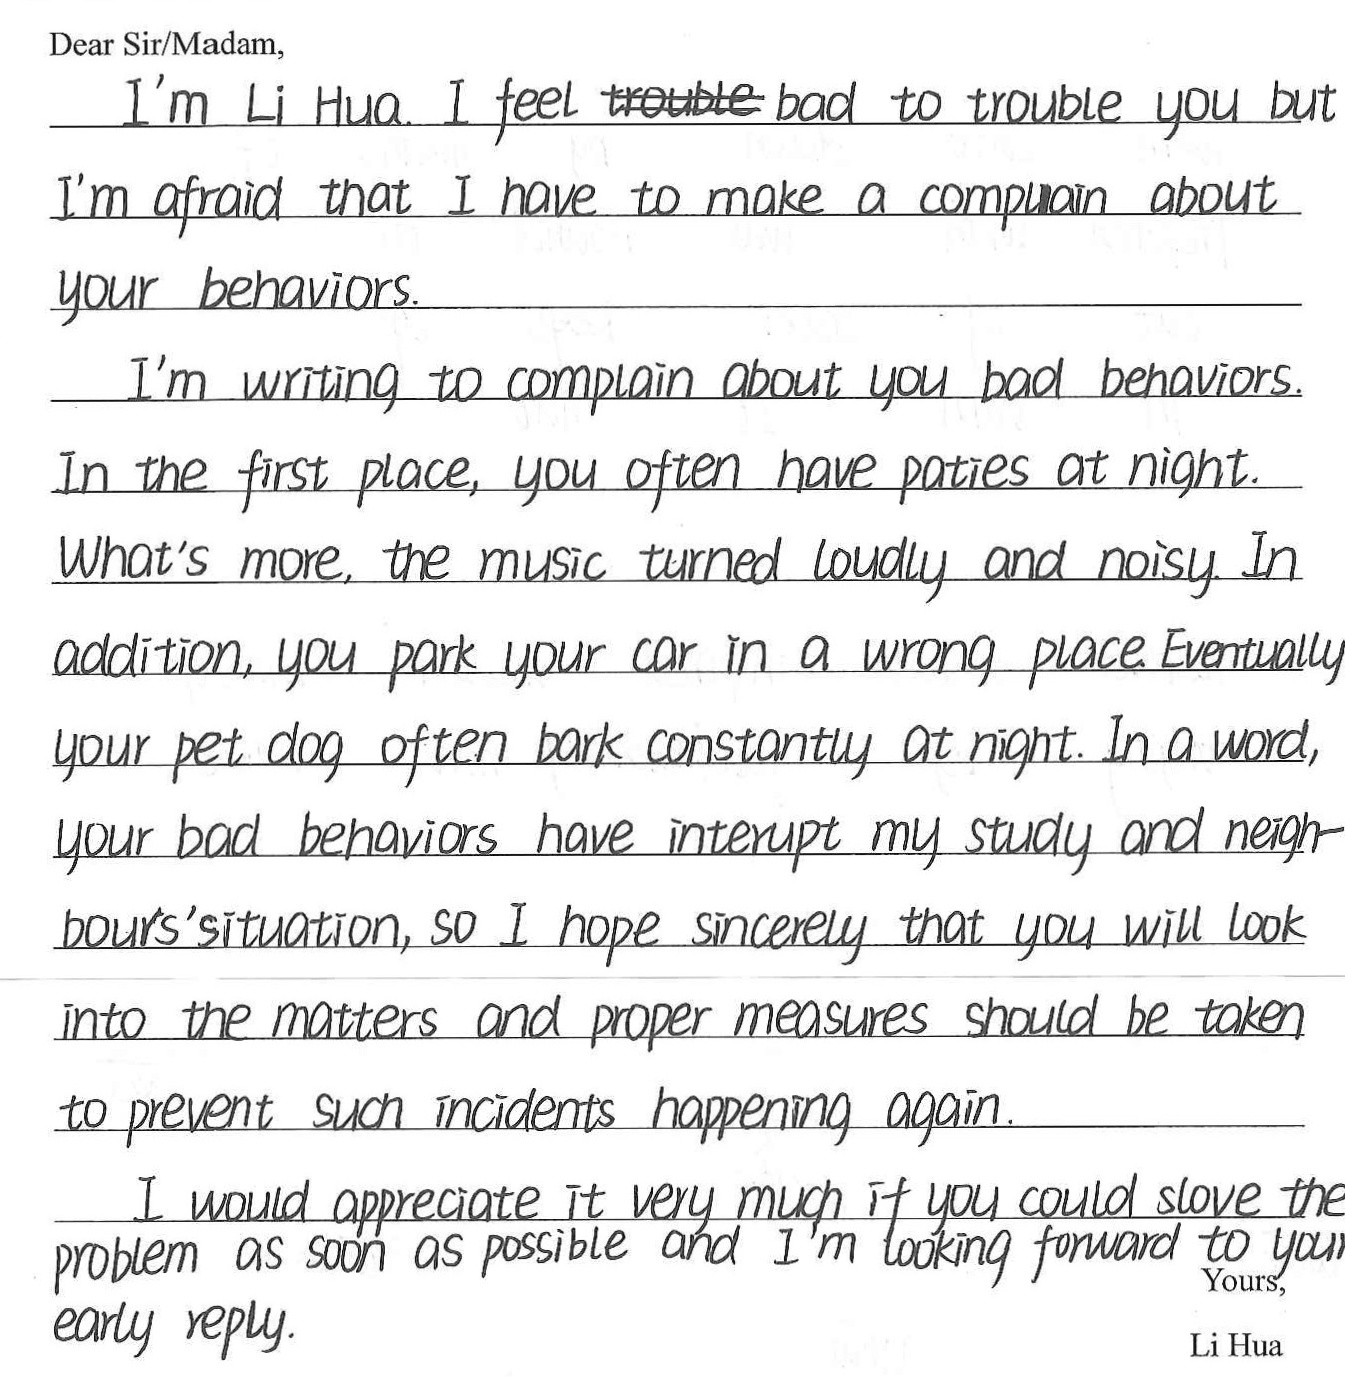 Dear Sir/Madam,
I'm Li Hua. I feel trouble bad to trouble you but
I'm afraid that I have to make a complain about
your behaviors.
I'm writing to complain about you bad behaviors.
In the first place, you often have paties at night.
What's more, the music turned loudly and noisy. In
addition, you park your car in a wrong place. Eventually
your pet dog often bark constantly at night. In a word,
your bad behaviors have interupt my study and neigh-
bours' situation, so I hope sincerely that you will look
into the matters and proper measures should be taken
to prevent such incidents happening again.
I would appreciate it very much if you could slove the
problem as soon as possible and I'm looking forward to your
Yours,
early reply.
Li Hua